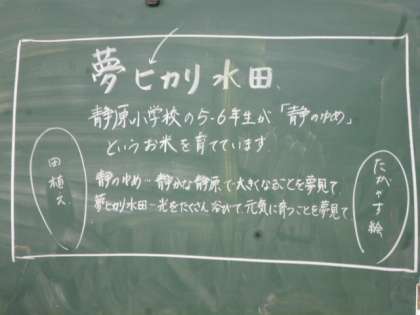 夢ヒカリ水田
静原小学校の5-6年生が「静のゆめ」
というお米を育てています
静のゆめ…静かな静原で大きくなることを夢見て
夢ヒカリ水田…光をたくさん浴びて元気に育つことを夢見て
田植え
たがやす絵